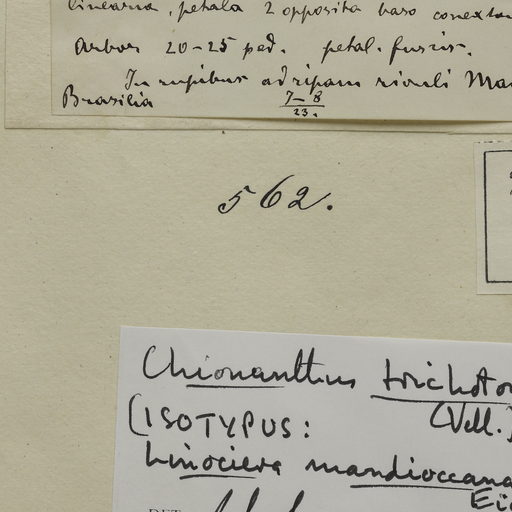 linearia, petala 2 opposita baso conexta
Arbor 20-25 ped. petal. fuscis.
In rupibus ad ripam rivuli Ma
Brasilia 7-8
23.
562.
Chionanthus trichoto
(Vell.)
(ISOTYPUS:
Linociera mandioccana
Ei
DET.